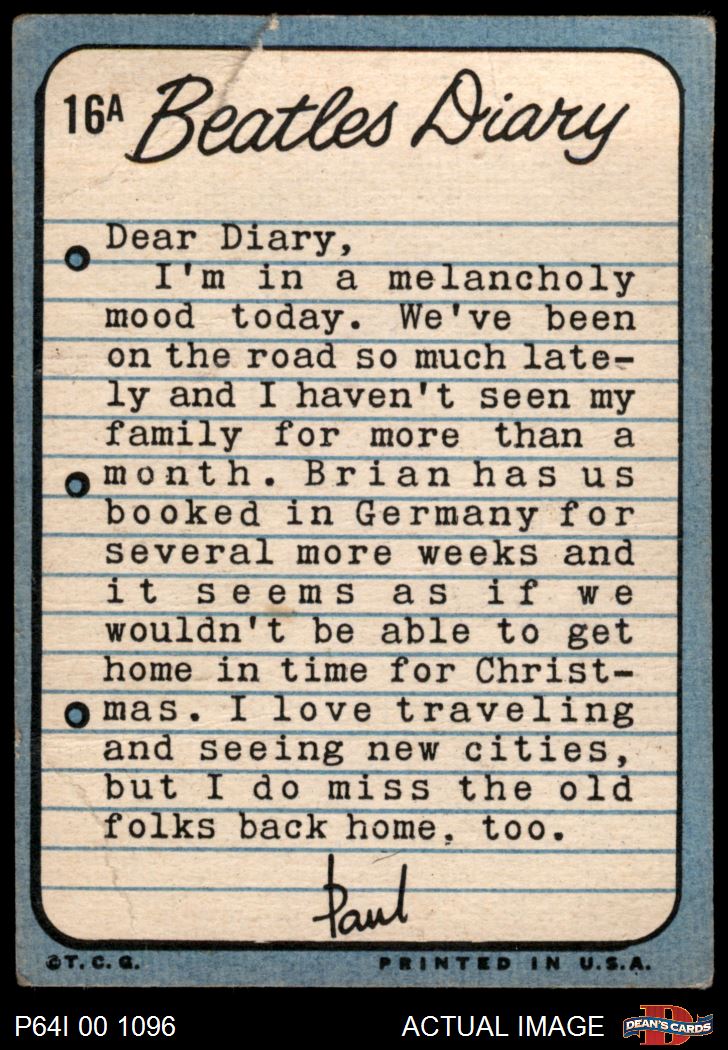 16A Beatles Diary
Dear Diary,
I'm in a melancholy
mood today. We've been
on the road so much late-
ly and I haven't seen my
family for more than a
month. Brian has us
booked in Germany for
several more weeks and
it seems as if we
wouldn't be able to get
home in time for Christ-
mas. I love traveling
and seeing new cities,
but I do miss the old
folks back home, too.
Paul
©T.C.G. PRINTED IN U.S.A.
P64I 00 1096 ACTUAL IMAGE D DEAN'S CARDS